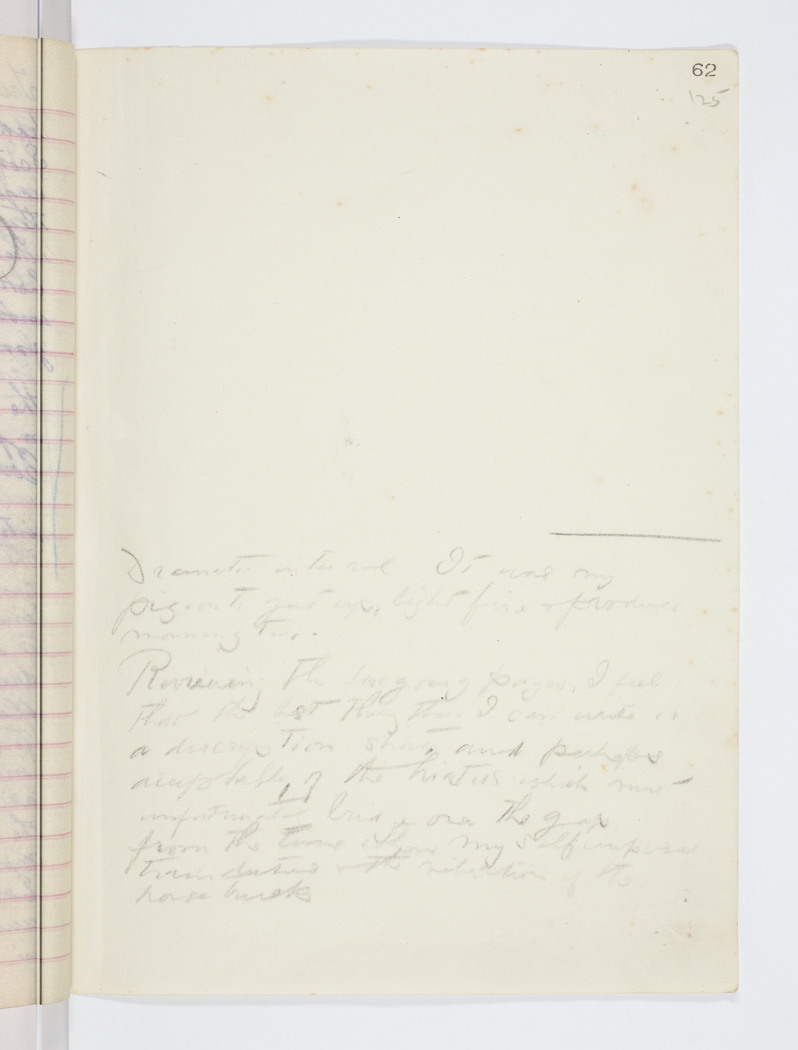 62
125
Dramatic interval It was my
pigeon to get up, light fire & produce
morning tea.
Reviewing the foregoing pages, I feel
that the best thing that I can write is
a description short and perhaps
acceptable of the hiatus which must
unfortunately bridge over the gap
from the time when my self imposed
the
house